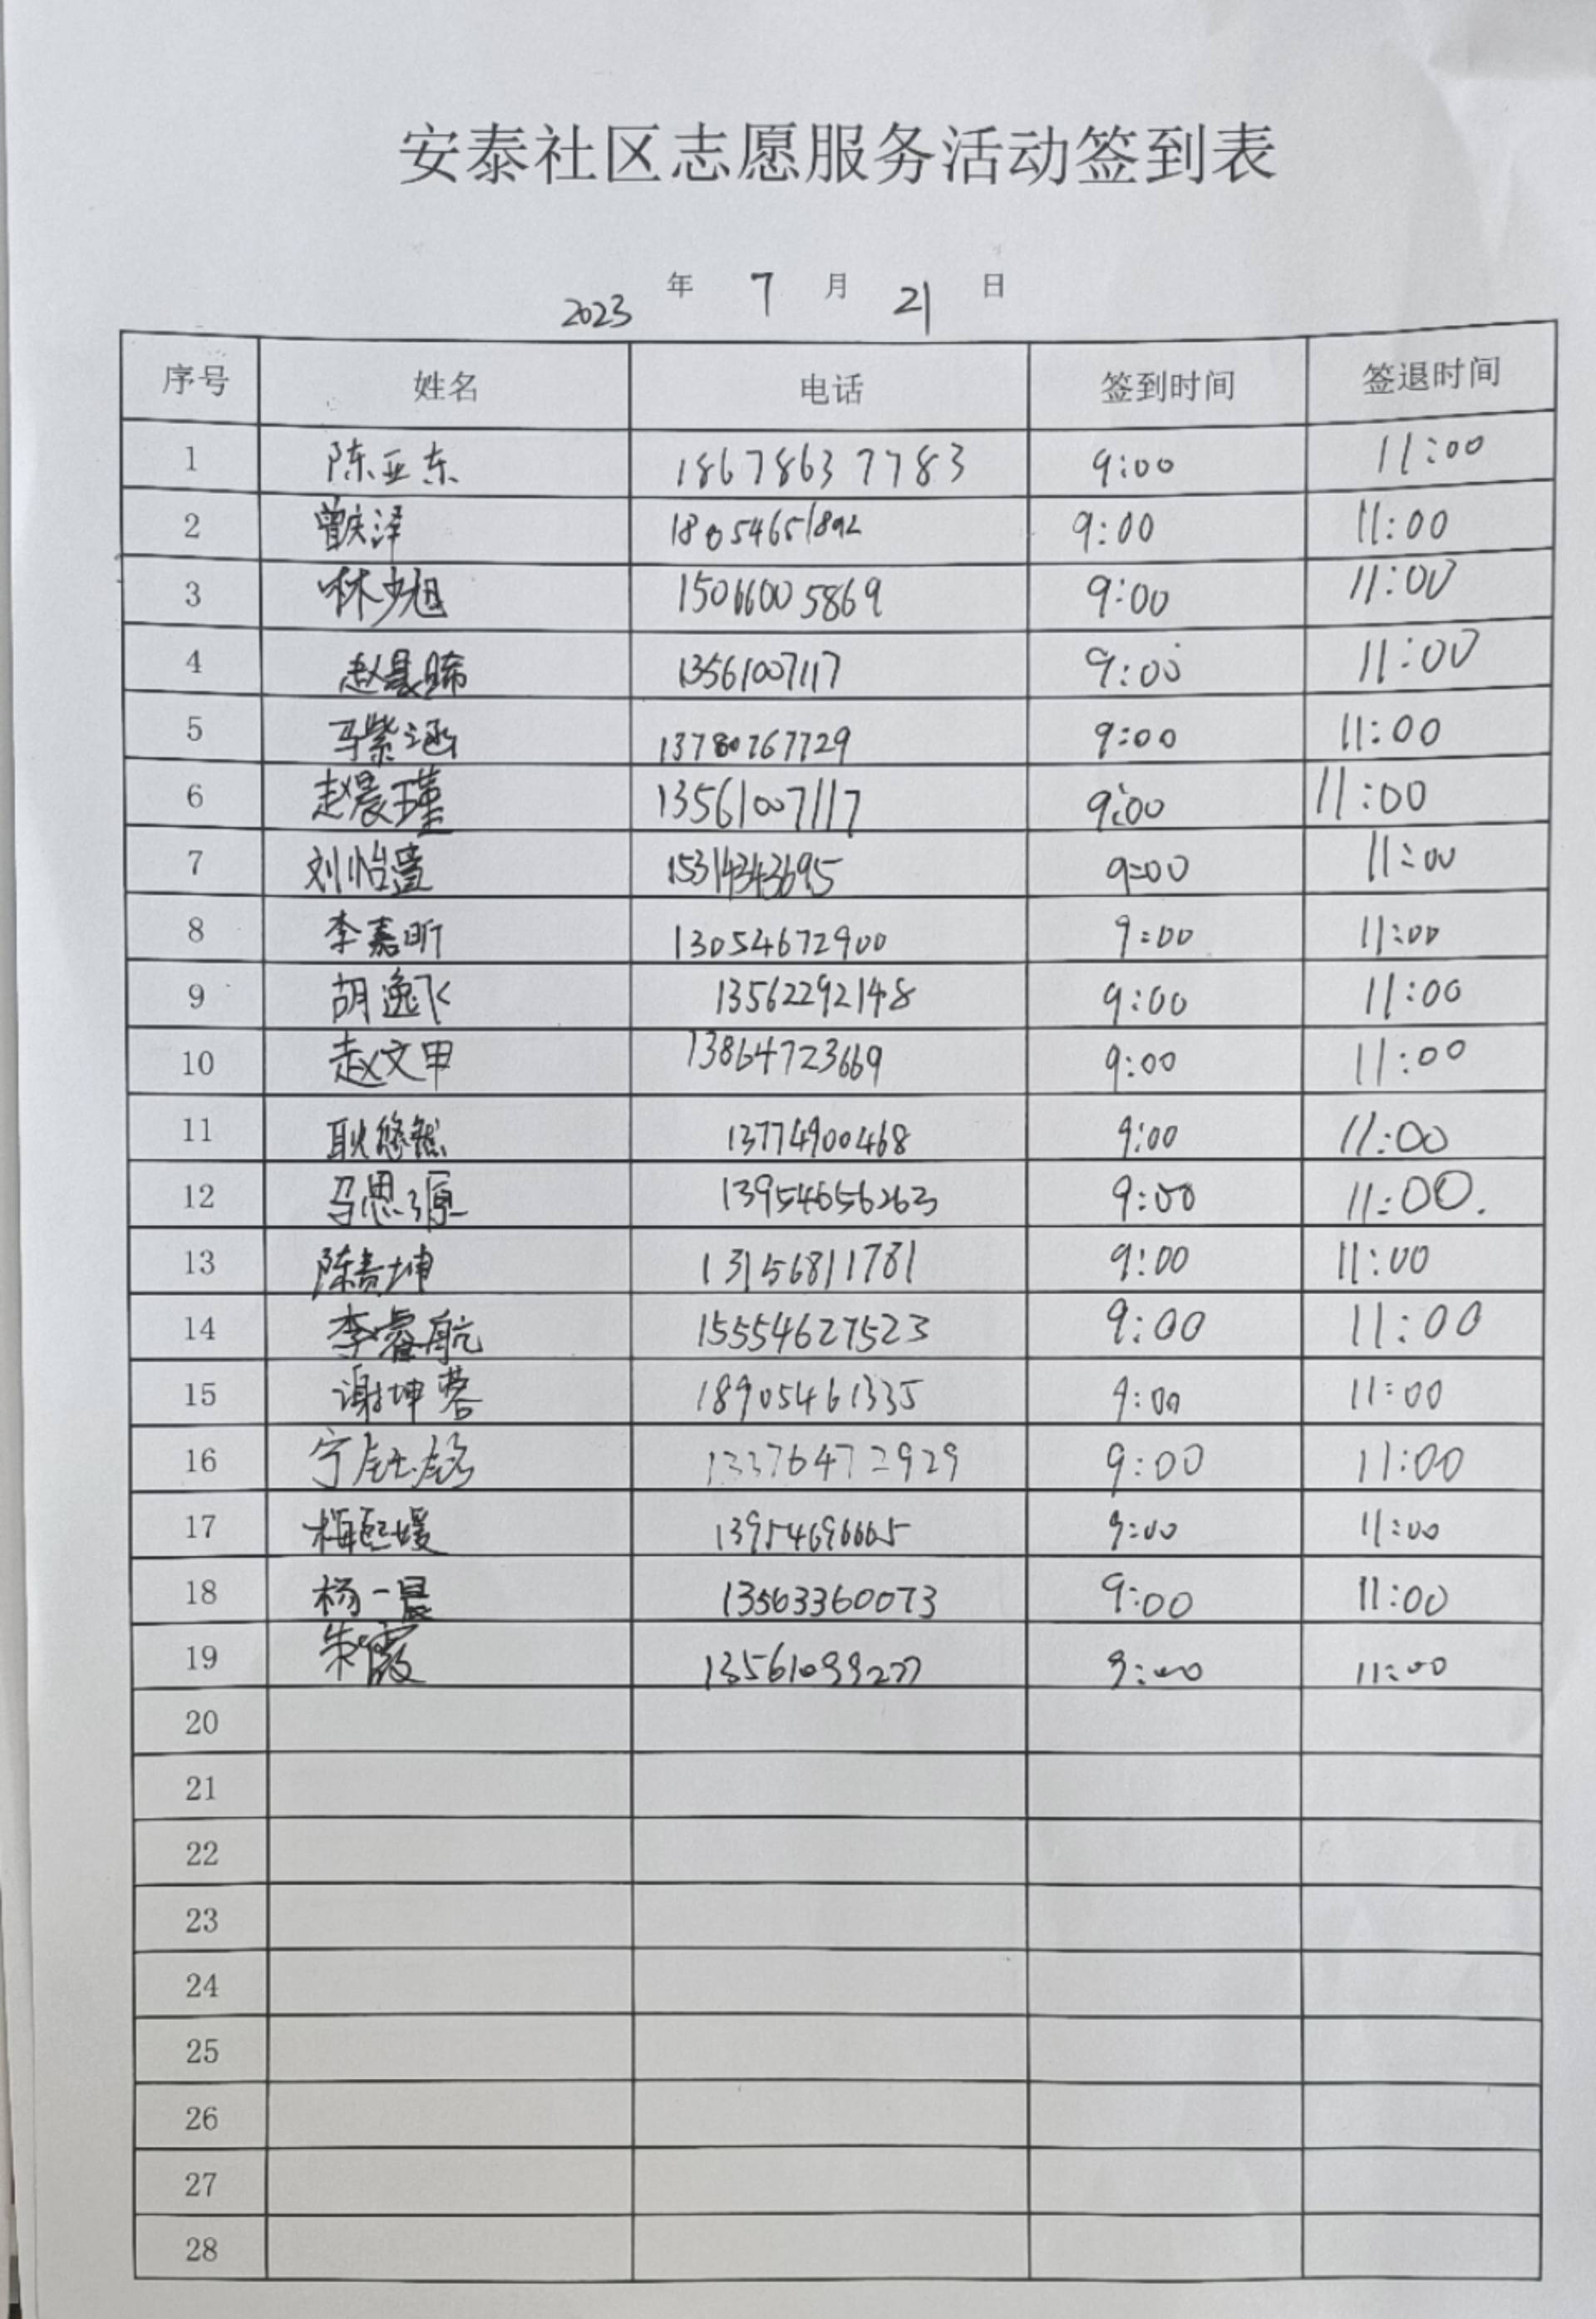 安泰社区志愿服务活动签到表
2023 年 7 月 21 日
序号 姓名 电话 签到时间 签退时间
1 陈亚东 18678637783 9:00 11:00
2 曾庆泽 18054651892 9:00 11:00
3 林少旭 15066005869 9:00 11:00
4 赵晨晞 13561007117 9:00 11:00
5 马紫涵 13780767729 9:00 11:00
6 赵晨瑾 13561007117 9:00 11:00
7 刘怡萱 15314343695 9:00 11:00
8 李嘉昕 13054672900 9:00 11:00
9 胡逸飞 13562292148 9:00 11:00
10 赵文甲 13864723669 9:00 11:00
11 耿悠然 13774900468 9:00 11:00
12 马思源 13954656263 9:00 11:00.
13 陈奇坤 13156811781 9:00 11:00
14 李睿航 15554627523 9:00 11:00
15 谢坤蓉 18905461335 9:00 11:00
16 宁钰铭 13376472929 9:00 11:00
17 梅熙媛 13954696665 9:00 11:00
18 杨一晨 13563360073 9:00 11:00
19 朱霞 13561099277 9:00 11:00
20
21
22
23
24
25
26
27
28